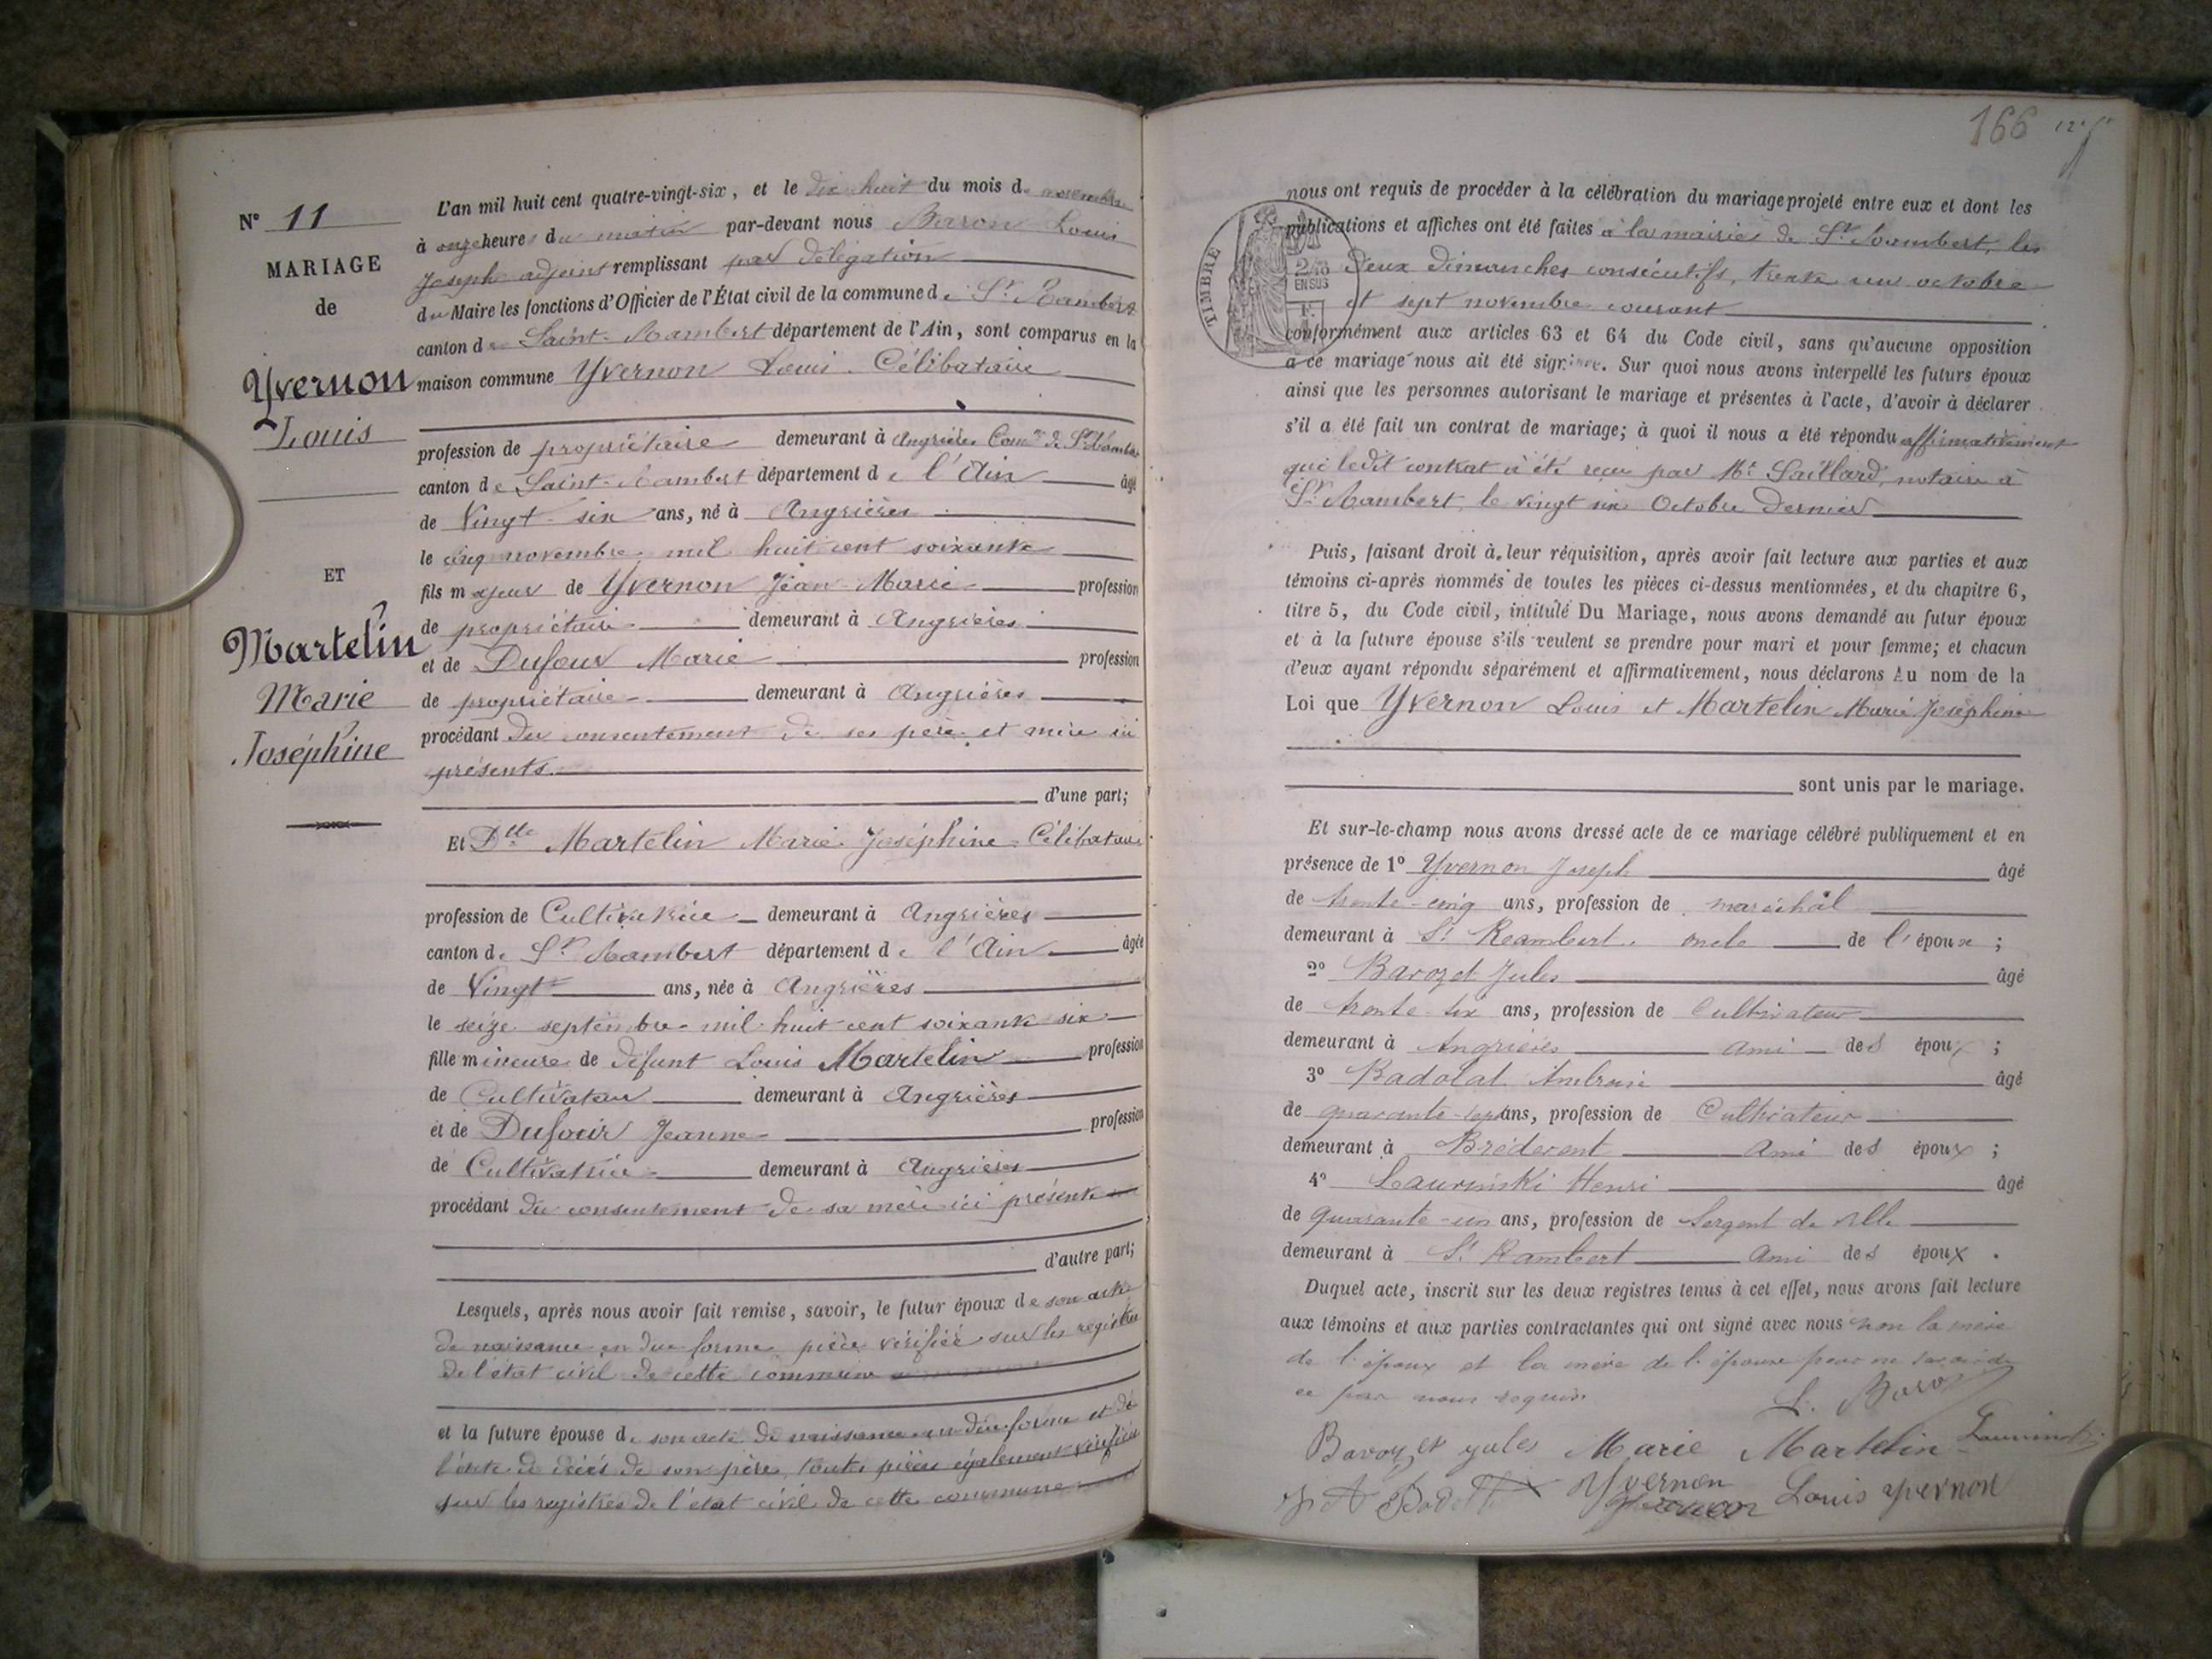 N° 11
MARIAGE
de
Yvernon
Louis
ET
Martelin
Marie
Joséphine
L'an mil huit cent quatre-vingt-six, et le dix huit du mois de novembre
à onze heures du matin par-devant nous Baron Louis
Joseph adjoint remplissant par délégation
du Maire les fonctions d'Officier de l'État civil de la commune de St Rambert
canton de Saint-Rambert département de l'Ain, sont comparus en la
maison commune Yvernon Louis. Célibataire
profession de propriétaire demeurant à Angrières Comne de St Rambert
canton de Saint-Rambert département de l'Ain âgé
de Vingt-six ans, né à Angrières
le cinq novembre mil huit cent soixante
fils majeur de Yvernon Jean-Marie profession
de propriétaire demeurant à Angrières
et de Dufour Marie profession
de propriétaire demeurant à Angrières
procédant du consentement de ses père et mère ici
présents.
d'une part;
Et Dlle Martelin Marie Joséphine - Célibataire
profession de Cultivatrice demeurant à Angrières
canton de St Rambert département de l'Ain âgée
de Vingt ans, née à Angrières
le seize septembre mil huit cent soixante six
fille mineure de défunt Louis Martelin profession
de Cultivateur demeurant à Angrières
et de Dufour Jeanne profession
de Cultivatrice demeurant à Angrières
procédant du consentement de sa mère ici présente
d'autre part;
Lesquels, après nous avoir fait remise, savoir, le futur époux de son acte
de naissance en due forme pièce vérifiée sur les registres
de l'état civil de cette commune
et la future épouse de son acte de naissance en due forme et de
l'acte de décès de son père, toutes pièces également vérifiées
sur les registres de l'état civil de cette commune
166
TIMBRE
2/10
EN SUS
nous ont requis de procéder à la célébration du mariage projeté entre eux et dont les
publications et affiches ont été faites à la mairie de St Rambert, les
deux dimanches consécutifs, trente un octobre
et sept novembre courant
conformément aux articles 63 et 64 du Code civil, sans qu'aucune opposition
à ce mariage nous ait été signifiée. Sur quoi nous avons interpellé les futurs époux
ainsi que les personnes autorisant le mariage et présentes à l'acte, d'avoir à déclarer
s'il a été fait un contrat de mariage; à quoi il nous a été répondu affirmativement
que ledit contrat a été reçu par Me Saillard, notaire à
St Rambert, le vingt six Octobre dernier
Puis, faisant droit à leur réquisition, après avoir fait lecture aux parties et aux
témoins ci-après nommés de toutes les pièces ci-dessus mentionnées, et du chapitre 6,
titre 5, du Code civil, intitulé Du Mariage, nous avons demandé au futur époux
et à la future épouse s'ils veulent se prendre pour mari et pour femme; et chacun
d'eux ayant répondu séparément et affirmativement, nous déclarons Au nom de la
Loi que Yvernon Louis et Martelin Marie Joséphine
sont unis par le mariage.
Et sur-le-champ nous avons dressé acte de ce mariage célébré publiquement et en
présence de 1° Yvernon Joseph âgé
de trente-cinq ans, profession de maréchal
demeurant à St Rambert, oncle de l'époux;
2° Bavozet Jules âgé
de trente six ans, profession de Cultivateur
demeurant à Angrières ami des époux;
3° Badolat Ambroise âgé
de quarante-sept ans, profession de Cultivateur
demeurant à Brédevent ami des époux;
4° Laurinski Henri âgé
de quarante-un ans, profession de Sergent de ville
demeurant à St Rambert ami des époux.
Duquel acte, inscrit sur les deux registres tenus à cet effet, nous avons fait lecture
aux témoins et aux parties contractantes qui ont signé avec nous non la mère
de l'époux et la mère de l'épouse pour ne savoir de
ce par nous requis
L. Baron
Bavozet jules Marie Martelin Laurinski
Yvernon
Yvernon Louis yvernon